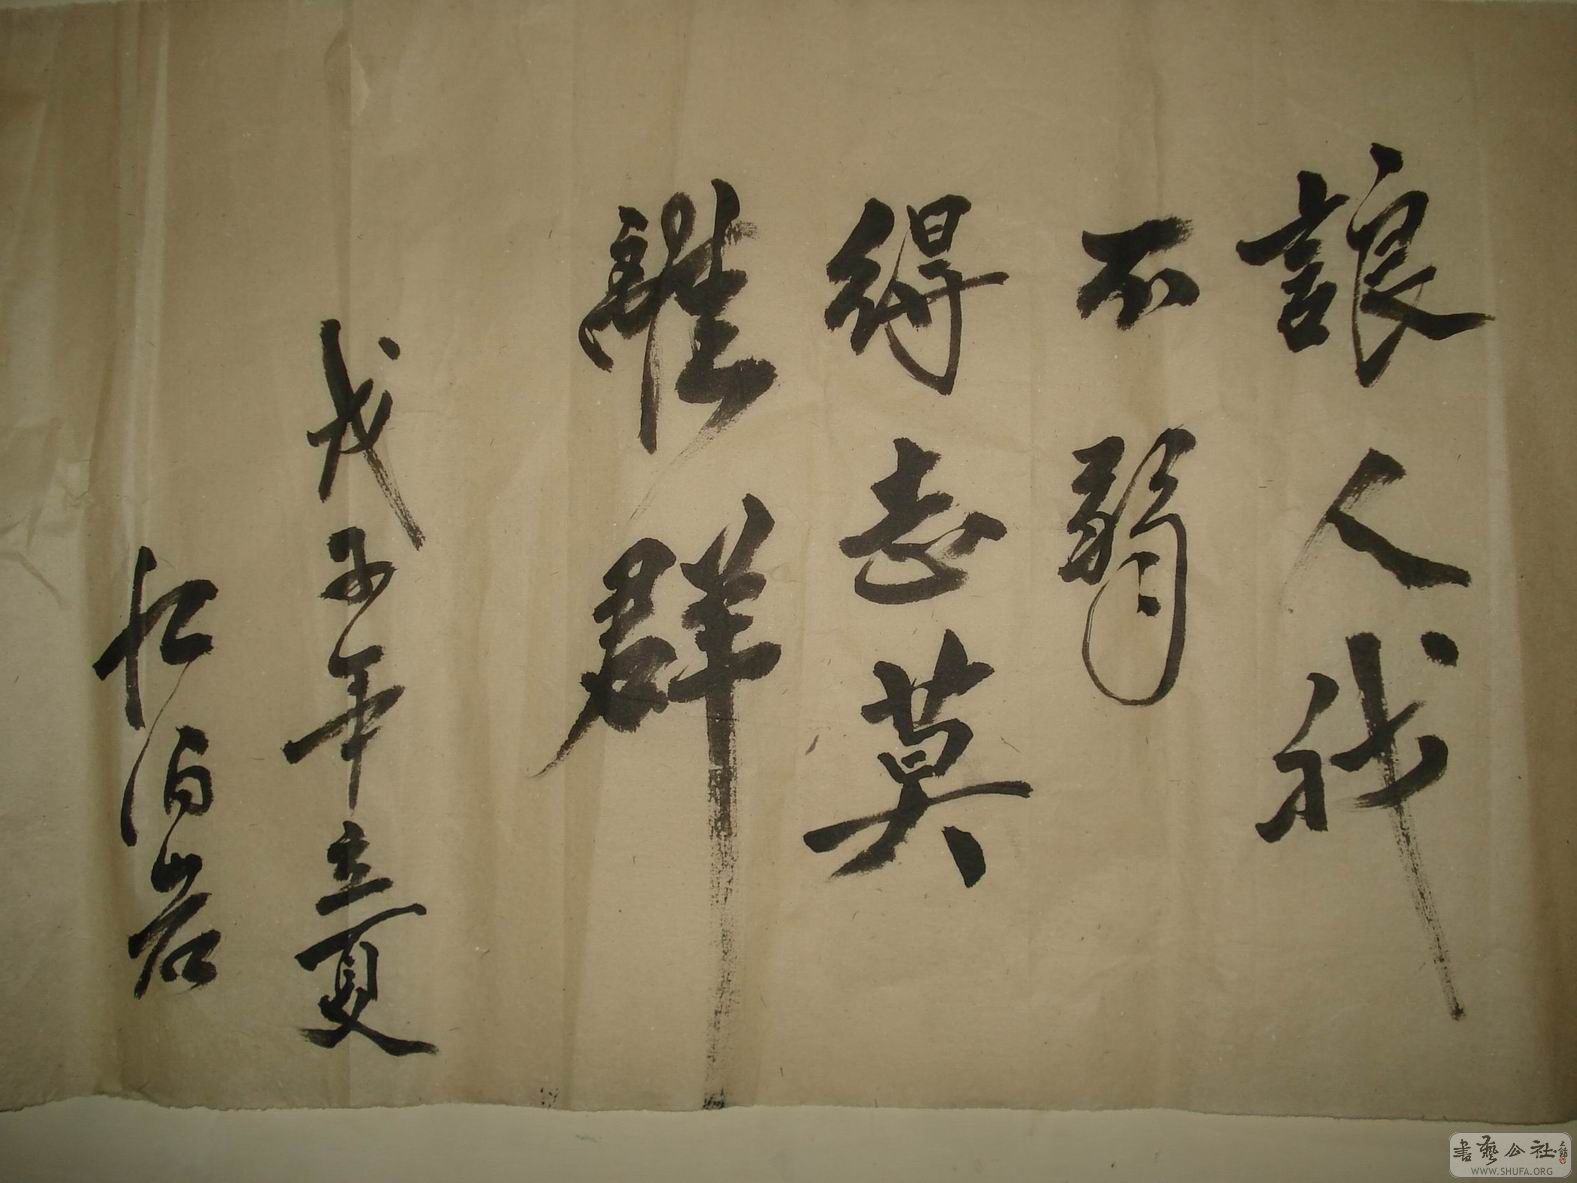 誏人我
不弱
得志莫
離群
戊子年立夏
泊岩
書藝公社
WWW.SHUFA.ORG